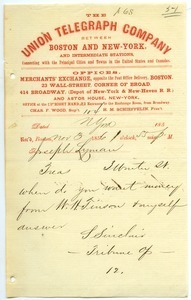 A 68
THE
UNION TELEGRAPH COMPANY
BETWEEN
BOSTON AND NEW-YORK,
AND INTERMEDIATE STATIONS,
Connecting with the Principal Cities and Towns in the United States and Canadas
OFFICES.
MERCHANTS' EXCHANGE, opposite the Post Office Delivery, BOSTON.
23 WALL-STREET, CORNER OF BROAD
414 BROADWAY, (Depot of New-York & New-Haven R. R.)
AND ASTOR HOUSE, NEW-YORK.
Dated
185
Rec'd,
Nov 3
Joseph Lyman
Treas
When do you want money
from W. H.
& myself
answer
S Sinclair
Tribune of
12.